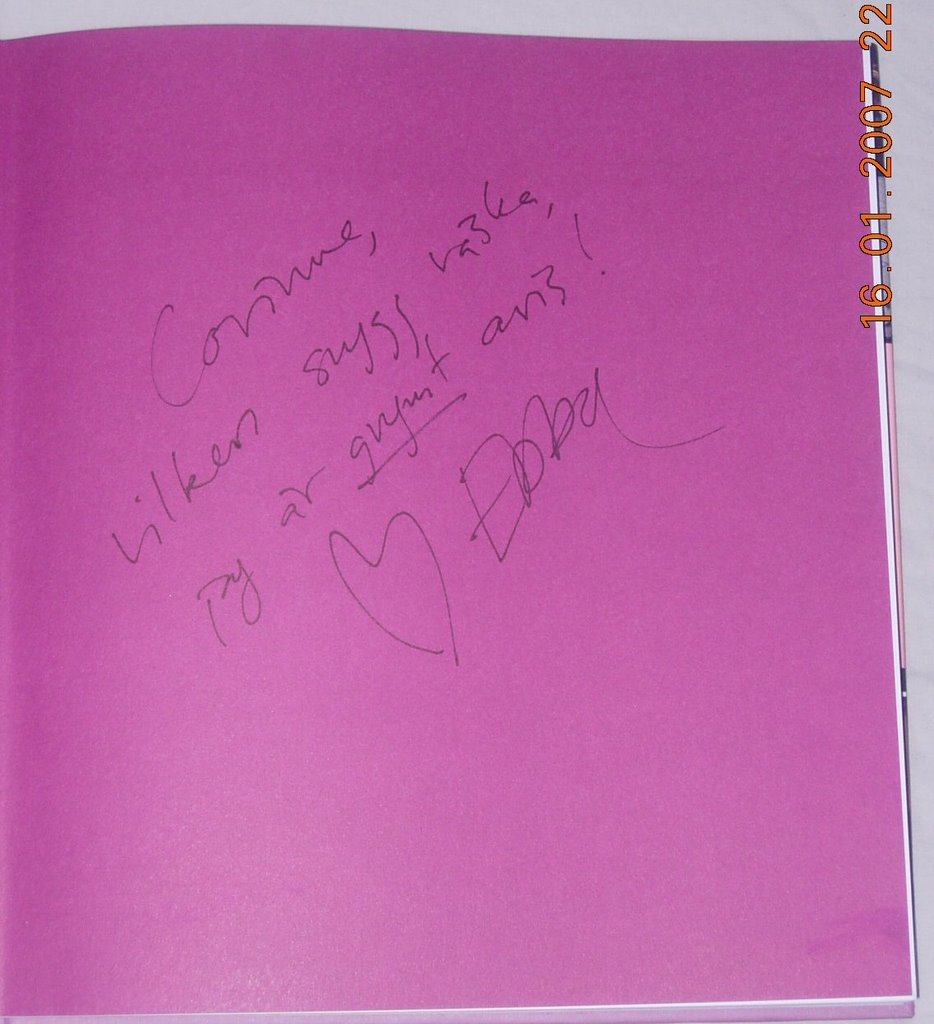 Corinne,
vilken snygg väska,
My är grymt avis!
Ebba
16.01.2007 22